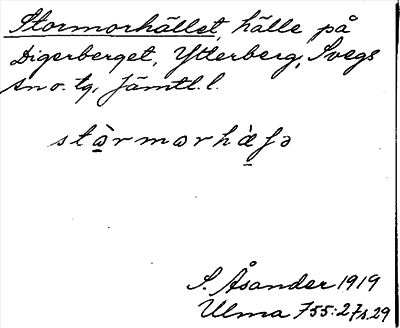 Stormorhället, hälle på
Digerberget, Ytterberg, Svegs
sn o. tg, Jämtl. l.
stɷ̀rmɷrhæ̀ʃə
S. Åsander 1919
Ulma 755:27 s. 29